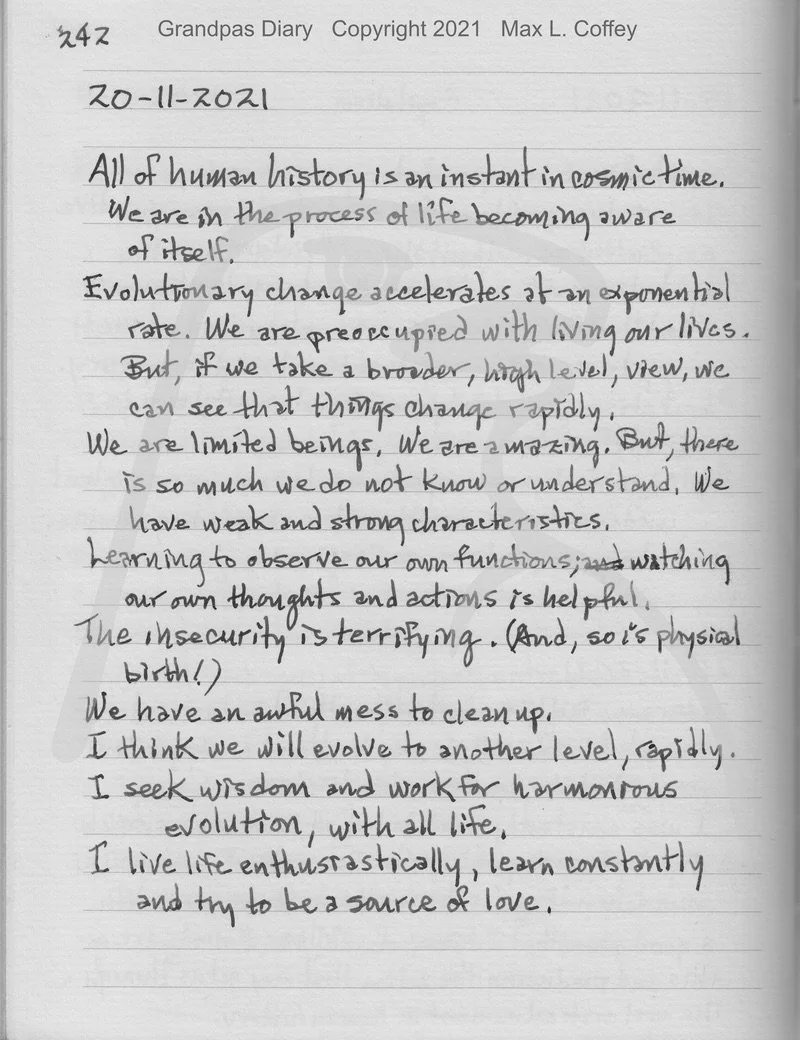 242
Grandpas Diary Copyright 2021 Max L. Coffey
20-11-2021
All of human history is an instant in cosmic time.
We are in the process of life becoming aware
of itself.
Evolutionary change accelerates at an exponential
rate. We are preoccupied with living our lives.
But, if we take a broader, high level, view, we
can see that things change rapidly.
We are limited beings. We are amazing. But, there
is so much we do not know or understand. We
have weak and strong characteristics.
Learning to observe our own functions; and watching
our own thoughts and actions is helpful.
The insecurity is terrifying. (And, so is physical
birth!)
We have an awful mess to clean up.
I think we will evolve to another level, rapidly.
I seek wisdom and work for harmonious
evolution, with all life.
I live life enthusiastically, learn constantly
and try to be a source of love.